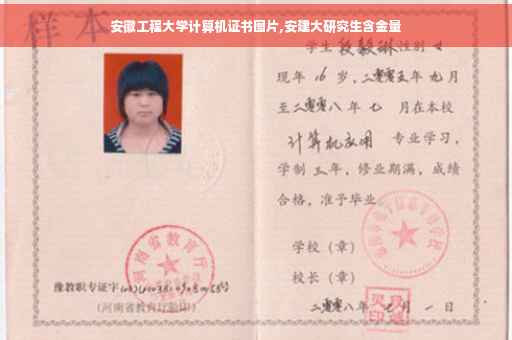 安徽工程大学计算机证书图片,安建大研究生含金量
样本
学生段毅琳性别女
现年16岁,二零零五年九月
至二零零八年七月在本校
计算机应用 专业学习,
学制三年,修业期满,成绩
合格,准予毕业
学校(章)
校长(章)
二零零八年七月一日
河南省教育厅
豫教职专证字
(河南省教育厅验印)